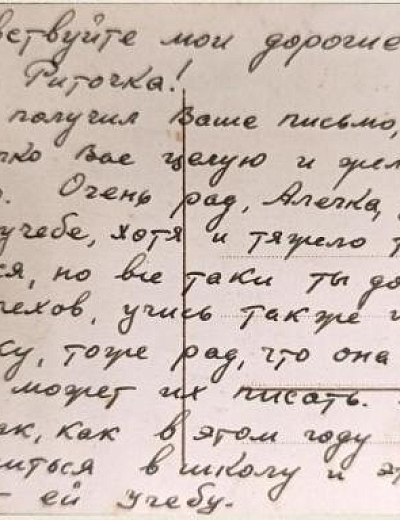 вствуйте мои дорогие
Риточка!
получил Ваше письмо,
чко Вас целую и жел
. Очень рад, Алечка,
учебе, хотя и тяжело
ся, но все таки ты до
пехов, учись также и
ку, тоже рад, что она
может их писать.
ак, как в этом году
иться в школу и э
ей учебу.